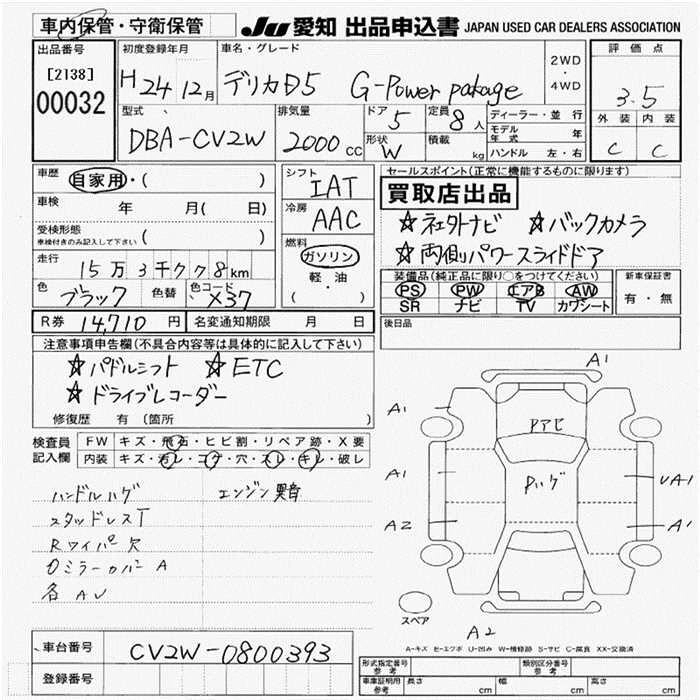 車内保管・守衛保管 JU 愛知 出品申込書 JAPAN USED CAR DEALERS ASSOCIATION
出品番号 初度登録年月 車名・グレード 2WD・4WD 評価点
[2138] 00032 H24 12月 デリカD5 G-Power pakage 3.5
型式 排気量 ドア 定員 ディーラー・並行 外装 内装
DBA-CV2W 2000cc 5 8人 モデル年式 年 C C
形状 W 積載 kg ハンドル 左・右
車歴 自家用・( ) シフト IAT セールスポイント(正常に機能するものに限ります)
車検 年 月( 日) 冷房 AAC 買取店出品
受検形態 ( ) ☆社外ナビ ☆バックカメラ
車検付きのみ記入して下さい 燃料 ガソリン ☆両側パワースライドドア
走行 15万3千クク8km 軽・油 装備品(純正品に限り○をつけてください) 新車保証書
色 ブラック 色替 色コード X37 ( ) PS PW エアB AW 有・無
SR ナビ TV カワシート
R券 14,710円 名変通知期限 月 日 後日品
注意事項申告欄(不具合内容等は具体的に記入して下さい)
☆パドルシフト ☆ETC
☆ドライブレコーダー
修復歴 有(箇所 )
検査員 FW キズ・飛石・ヒビ割・リペア跡・X要
記入欄 内装 キズ・汚レ・コゲ・穴・スレ・キレ・破レ
ハンドルハゲ エンジン異音
スタッドレスT
Rワイパー欠
Dミラーカバー A
各AU
A1
A1 Pアビ
A1 Pハゲ UA1
A2 A1
スペア
A2
A-キズ E-エクボ U-凹み W-補修跡 S-サビ C-腐食 XX-交換済
車台番号 CV2W-0800393
登録番号
形式指定番号 参考 類別区分番号 参考
車庫証明用 参考 長さ cm 幅 cm 高さ cm